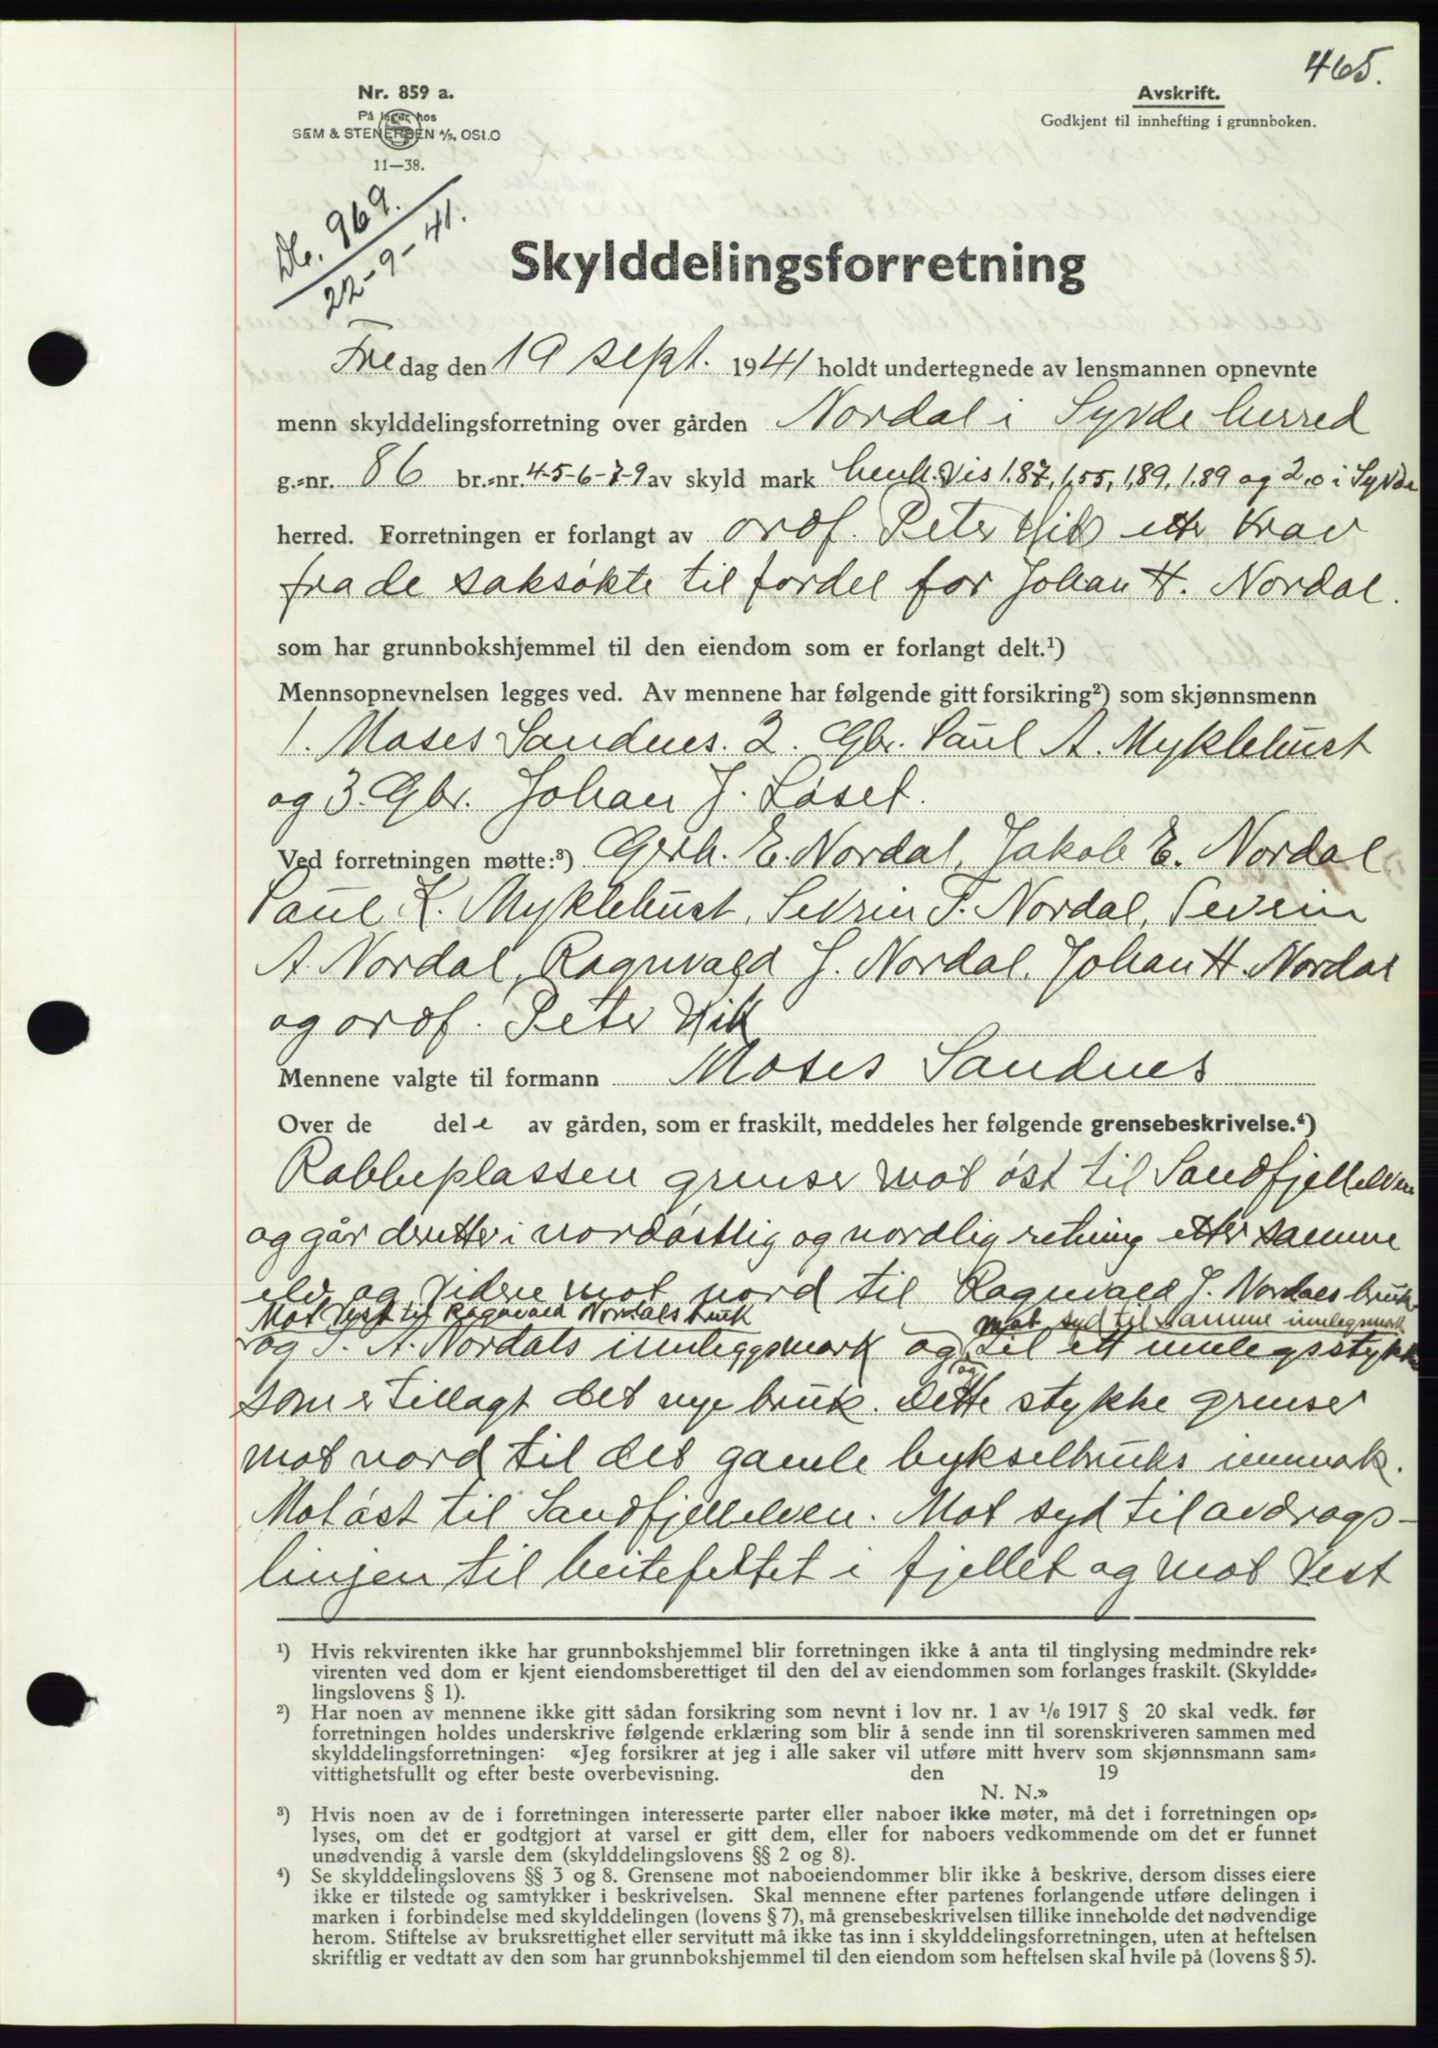 465.
Nr. 859 a.
På lager hos
SEM & STENERSEN A/S, OSLO
11—38.
Avskrift.
Godkjent til innhefting i grunnboken.
969.
22-9-41.
Skylddelingsforretning
Fredag den 19 sept. 1941 holdt undertegnede av lensmannen opnevnte
menn skylddelingsforretning over gården Nordal i Syvde herred
g.-nr. 86 br.-nr. 4-5-6-7-9 av skyld mark henh.vis 1.87, 1,55, 1,89, 1.89 og 2,0 i Syvde
herred. Forretningen er forlangt av ordf. Peter Vik etter krav
fra de saksøkte til fordel for Johan H. Nordal.
som har grunnbokshjemmel til den eiendom som er forlangt delt.¹)
Mennsopnevnelsen legges ved. Av mennene har følgende gitt forsikring²) som skjønnsmenn
1. Moses Sandnes. 2. Gbr. Paul A. Myklebust
og 3. Gbr. Johan J. Løset.
Ved forretningen møtte:³) Gerh. E. Nordal, Jakob E. Nordal
Paul K. Myklebust, Sevrin F. Nordal, Sevrin
A. Nordal, Ragnvald J. Nordal, Johan H. Nordal
og ordf. Peter Vik
Mennene valgte til formann Moses Sandnes
Over de dele av gården, som er fraskilt, meddeles her følgende grensebeskrivelse.⁴)
Rabbeplassen grenser mot øst til Sandfjellelven
og går deretter i nordøstlig og nordlig retning etter samme
elv og videre mot nord til Ragnvald J. Nordals bruk
Mot vest til Ragnvald Nordals bruk mot syd til samme innlegsmark
og S. A. Nordals innleggsmark og til ett innlegsstykke
og
som er tillagt det nye bruk. Dette stykke grenser
mot nord til det gamle bykselbruks innmark.
Mot øst til Sandfjellelven. Mot syd til avdrags-
linjen til beitefeltet i fjellet og mot vest
¹) Hvis rekvirenten ikke har grunnbokshjemmel blir forretningen ikke å anta til tinglysing medmindre rek-
virenten ved dom er kjent eiendomsberettiget til den del av eiendommen som forlanges fraskilt. (Skyldde-
lingslovens § 1).
²) Har noen av mennene ikke gitt sådan forsikring som nevnt i lov nr. 1 av 1/6 1917 § 20 skal vedk. før
forretningen holdes underskrive følgende erklæring som blir å sende inn til sorenskriveren sammen med
skylddelingsforretningen: «Jeg forsikrer at jeg i alle saker vil utføre mitt hverv som skjønnsmann sam-
vittighetsfullt og efter beste overbevisning. den 19
N. N.»
³) Hvis noen av de i forretningen interesserte parter eller naboer ikke møter, må det i forretningen op-
lyses, om det er godtgjort at varsel er gitt dem, eller for naboers vedkommende om det er funnet
unødvendig å varsle dem (skylddelingslovens §§ 2 og 8).
⁴) Se skylddelingslovens §§ 3 og 8. Grensene mot naboeiendommer blir ikke å beskrive, dersom disses eiere
ikke er tilstede og samtykker i beskrivelsen. Skal mennene efter partenes forlangende utføre delingen i
marken i forbindelse med skylddelingen (lovens § 7), må grensebeskrivelsen tillike inneholde det nødvendige
herom. Stiftelse av bruksrettighet eller servitutt må ikke tas inn i skylddelingsforretningen, uten at heftelsen
skriftlig er vedtatt av den som har grunnbokshjemmel til den eiendom som heftelsen skal hvile på (lovens § 5).